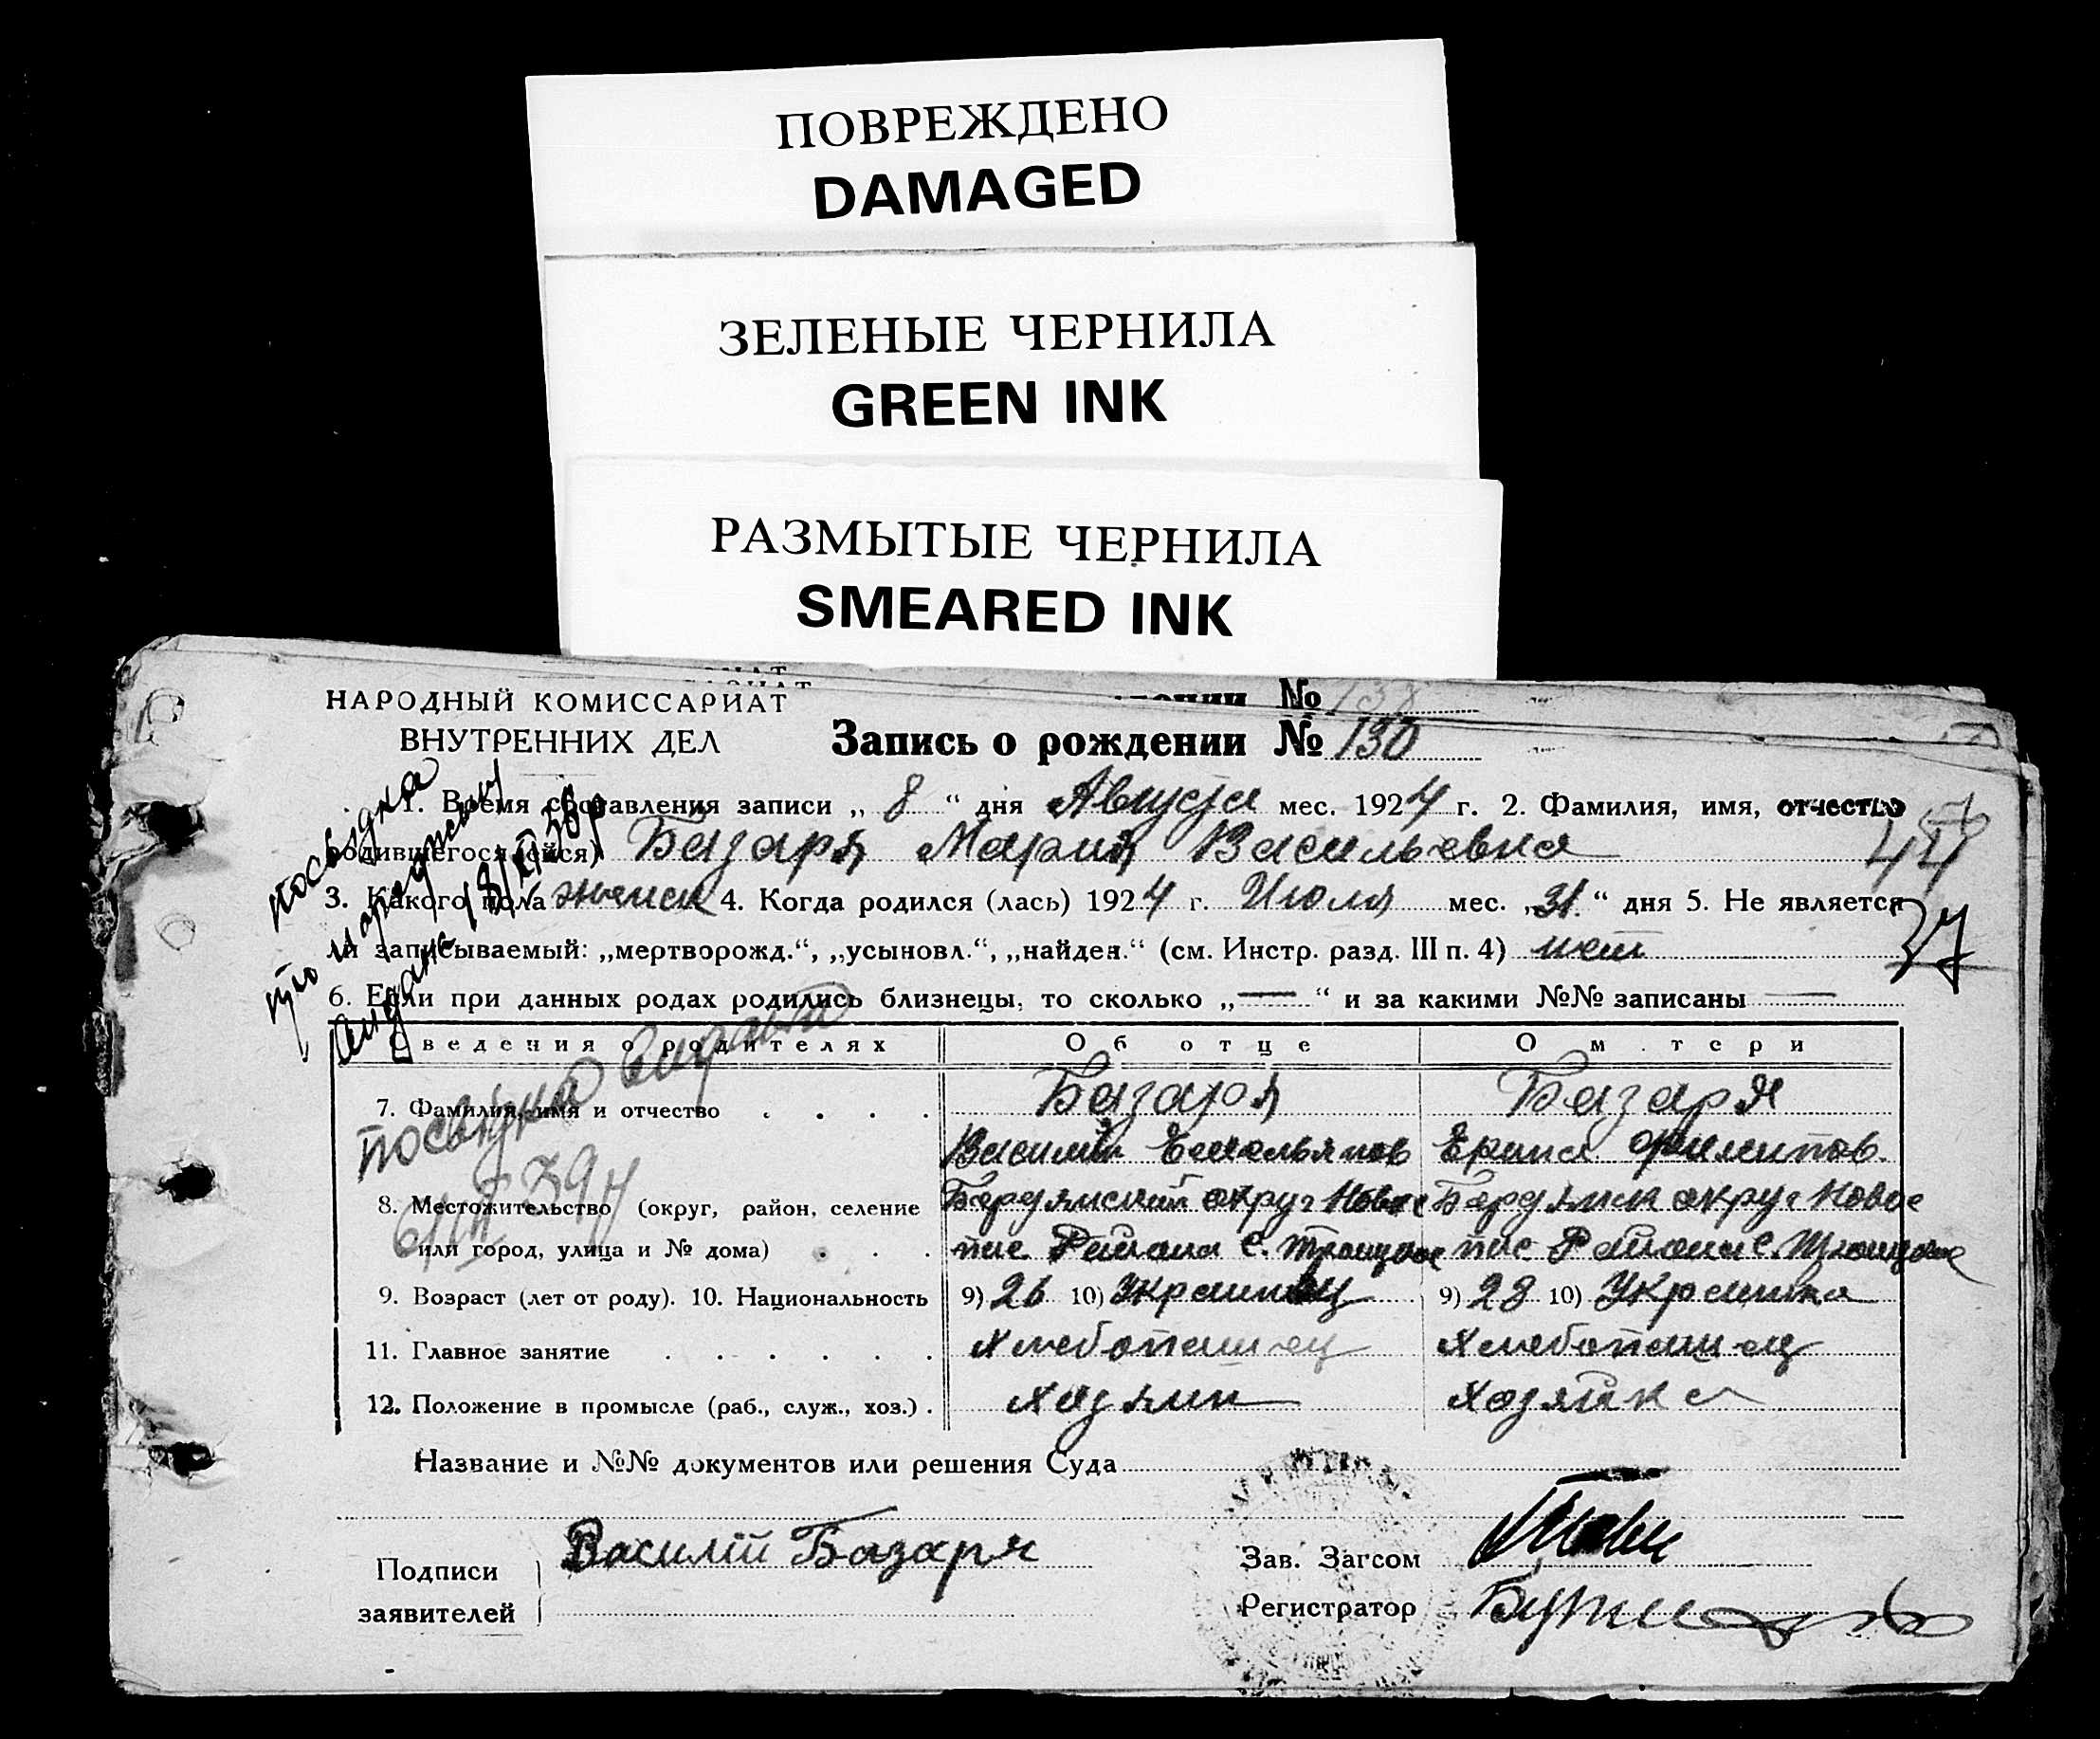 ПОВРЕЖДЕНО
DAMAGED
ЗЕЛЕНЫЕ ЧЕРНИЛА
GREEN INK
РАЗМЫТЫЕ ЧЕРНИЛА
SMEARED INK
НАРОДНЫЙ КОМИССАРИАТ
ВНУТРЕННИХ ДЕЛ
Запись о рождении № 130
1. Время составления записи „ 8 “ дня Августа мес. 1924 г. 2. Фамилия, имя, отчество
родившегося(ейся) Базаря Мария Васильевна
3. Какого пола женск 4. Когда родился (лась) 1924 г. Июля мес. „31“ дня 5. Не является
ли записываемый: „мертворожд.“, „усыновл.“, „найден.“ (см. Инстр. разд. III п. 4) нет
6. Если при данных родах родились близнецы, то сколько „—“ и за какими №№ записаны —
посвідка
про народжен
видана 18/
37
Сведения о родителях Об отце О матери
посвідка видана
39
7. Фамилия, имя и отчество Базаря Базаря
Василий Емельянов Филипов.
8. Местожительство (округ, район, селение Бердянский округ Ново Бердянск округ Ново
или город, улица и № дома) Района с. Троицкое Района с. Троицкое
9. Возраст (лет от роду). 10. Национальность 9) 26 10) Украинец 9) 28 10) Украинка
11. Главное занятие Хлебопашец Хлебопашец
12. Положение в промысле (раб., служ., хоз.) хазяин хозяйка
Название и №№ документов или решения Суда
Подписи
заявителей
Василий Базаря
Зав. Загсом
Регистратор